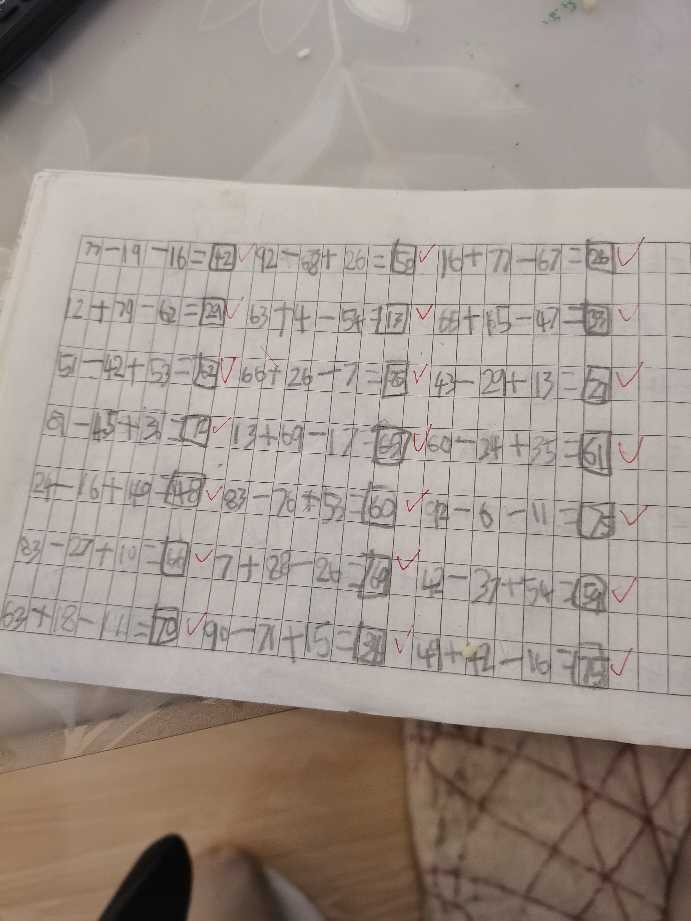 77-19-16=42 92-68+26=50 16+77-67=26
12+79-62=29 63+4-54=13 65+15-47=33
51-42+53=62 66+26-7=85 43-29+13=27
-45+3 = 13+69-17=65 60-24+35=61
24-16+40=48 83-76+53=60 92-6-11=75
83-27+10=66 7+88-26=69 42-37+54=59
63+18-11=70 90-71+15=34 49+42-16=75